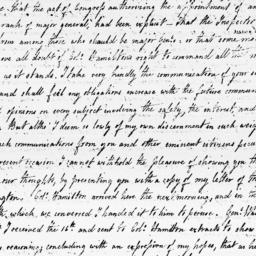 that the act of Congress authorizing the appointment of an
rank of major general, had been explicit. That the Inspector
from among those who should be major gen.s. or that some m
ove all doubt of Col. Hamiltons right to command all the m
as it stands. I take very kindly the communication of your s
and shall feel my obligations increase with the future commun
opinions on every subject involving the safety, the interest, and
But altho' I deem so lowly of my own discernment in such weig
ch communications from you and other eminent citizens pecu
resent occasion I cannot withhold the pleasure of showing you th
our thoughts, by presenting you with a copy of my letter of th
ington. Col. Hamilton arrived here the next morning, and in the
th, which, as we conversed I handed it to him to peruse. Gen.l Wa
I received the 16th and sent to Col. Hamilton extracts to show
reasoning; concluding with an expression of my hopes, that as he